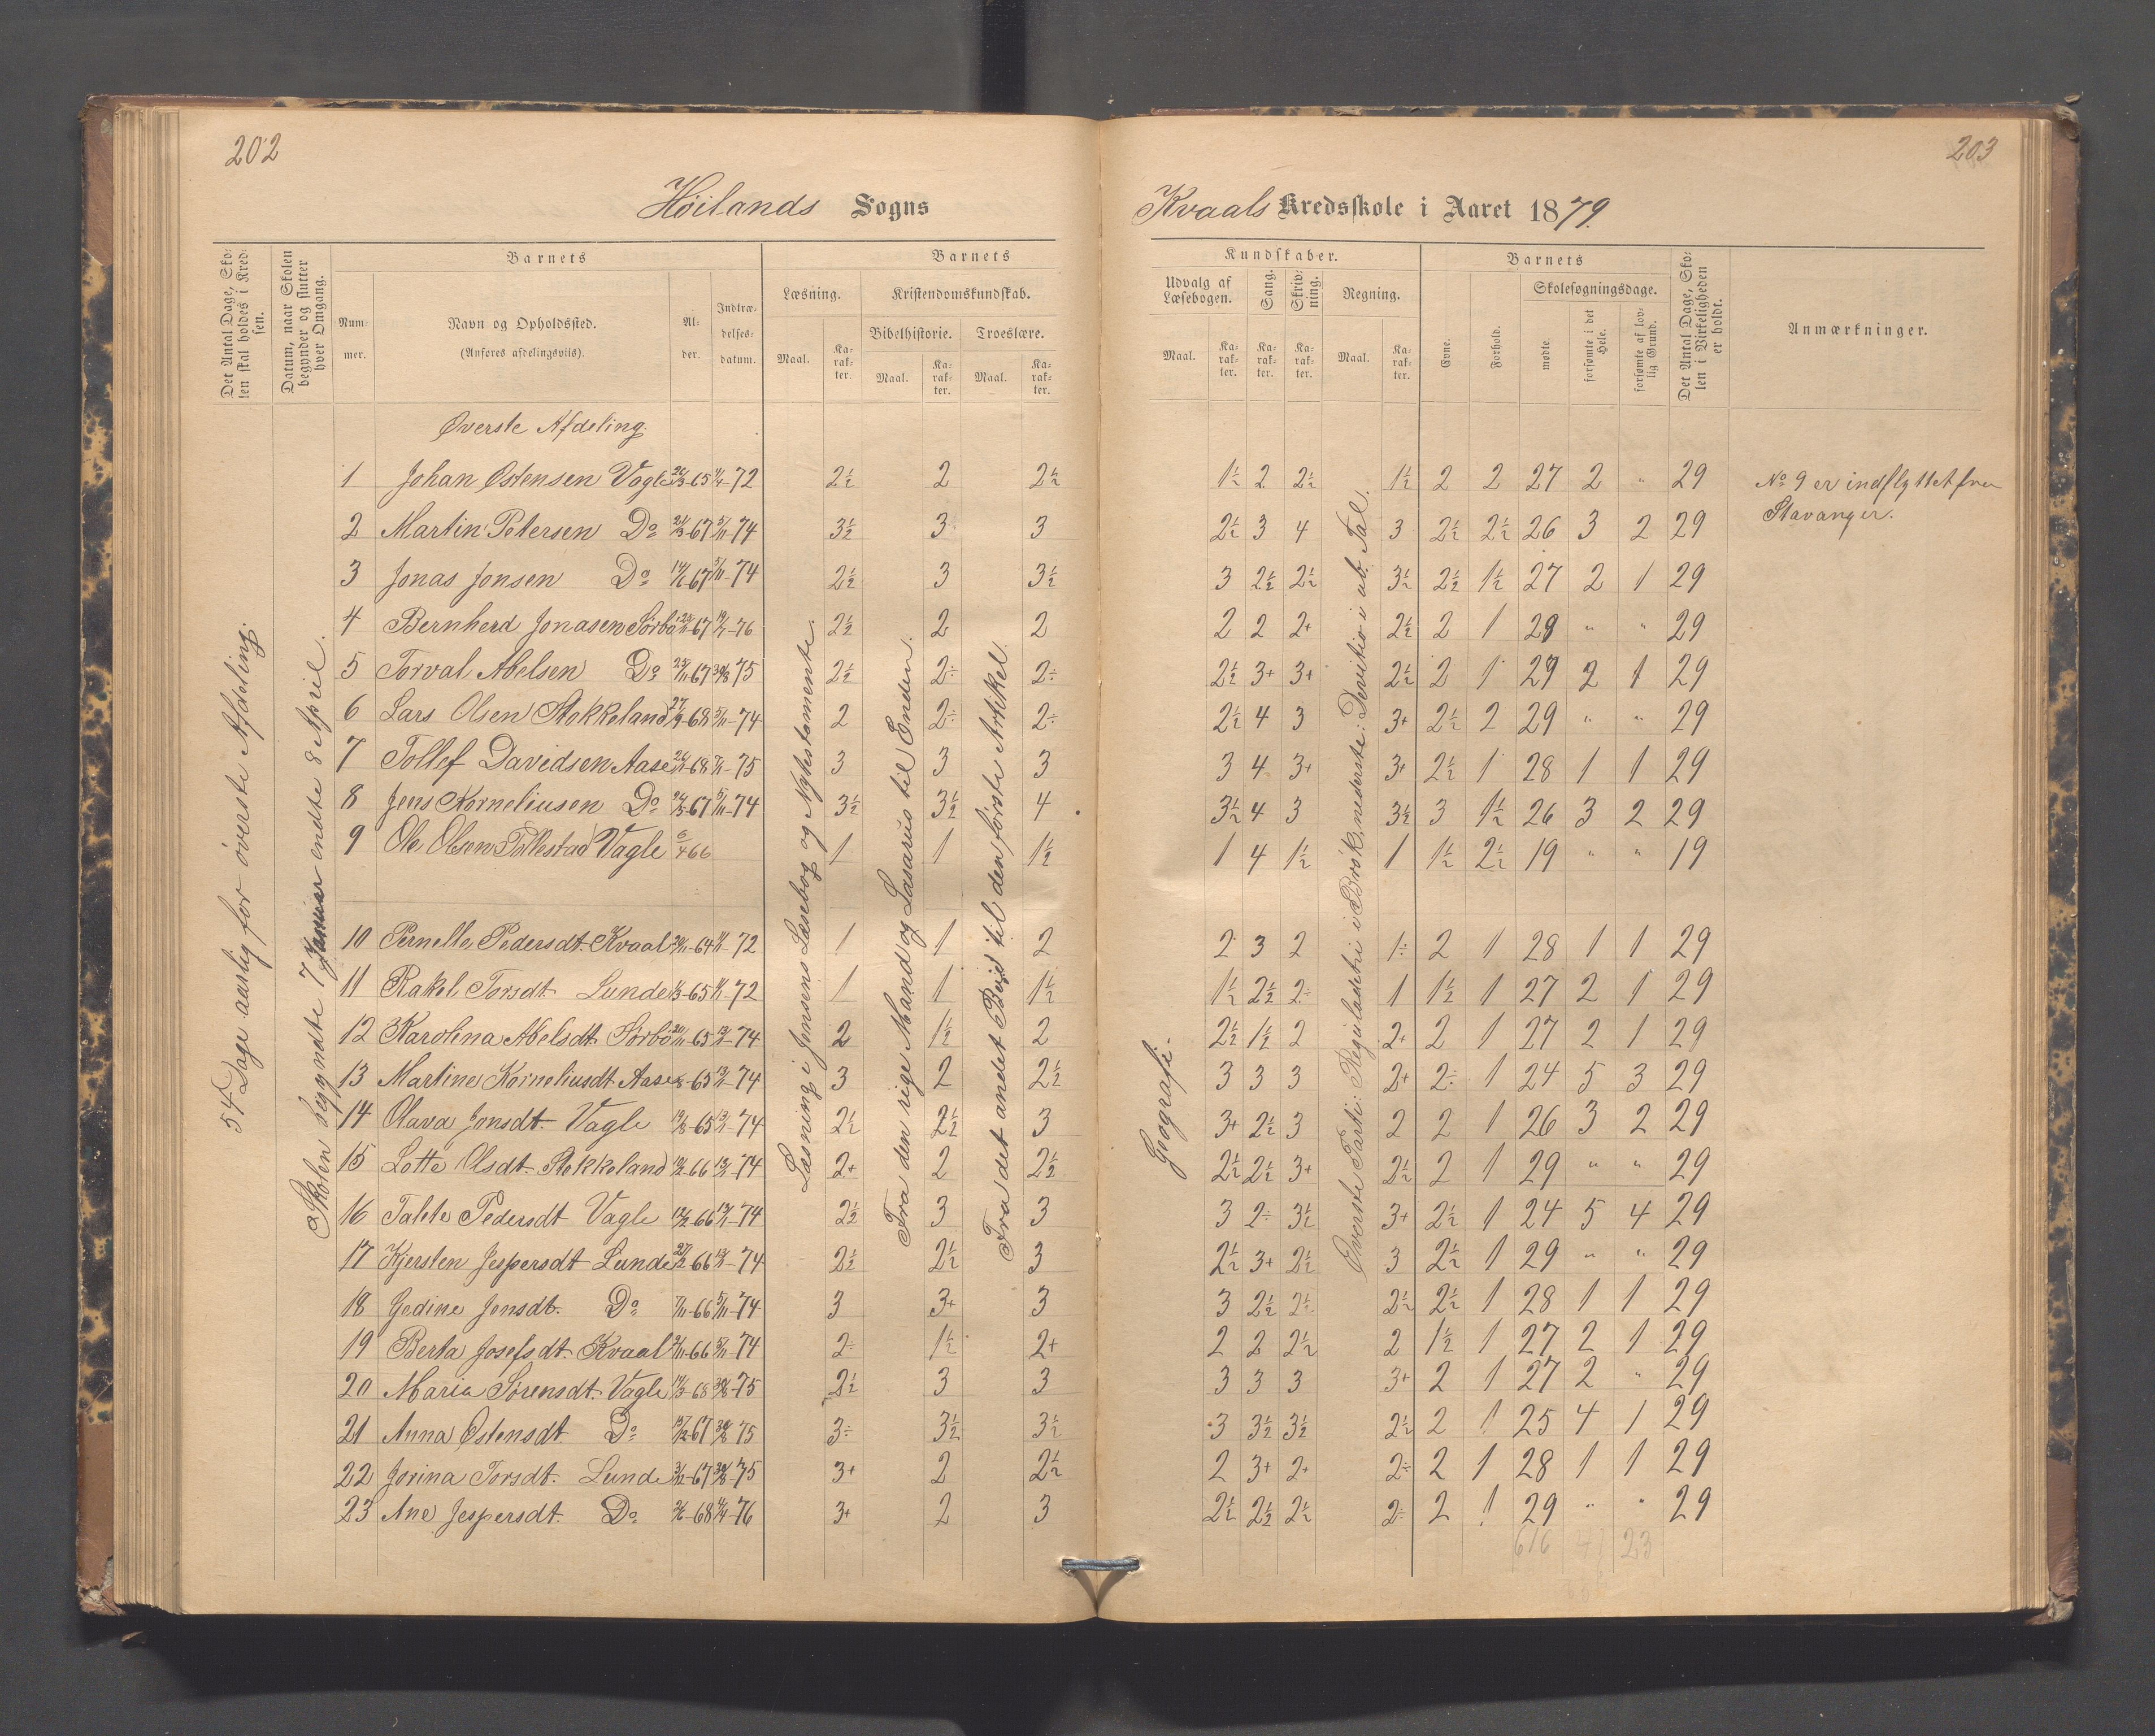 202
203
Høilands Sogns
Kvaals Kredsskole i Aaret 1879.
Det Antal Dage, Skolen skal holdes i Kredsen.
Datum, naar Skolen begynder og slutter hver Omgang.
Barnets
Nummer.
Navn og Opholdssted.
(Anføres afdelingsviis).
Alder.
Indtrædelsesdatum.
Barnets
Kundskaber.
Læsning.
Kristendomskundskab.
Bibelhistorie.
Troeslære.
Maal.
Karakter.
Maal.
Karakter.
Maal.
Karakter.
Udvalg af Læsebogen.
Sang.
Skrivning.
Regning.
Maal.
Karakter.
Karakter.
Karakter.
Maal.
Karakter.
Barnets
Evne.
Forhold.
Skolesøgningsdage.
mødte.
forsømte i det Hele.
forsømte af lovlig Grund.
Det Antal Dage, Skolen i Virkeligheden er holdt.
Anmærkninger.
54 Dage aarlig for øverste Afdeling.
Skolen begyndte 7 Januar endte 8 April.
Læsning i Jensens Læsebog og Nytestamente.
Fra den rige Mand og Lasarus til Enden.
Fra det andet Bud til den første Artikel.
Geografi.
Øverste Parti: Reguladetri i Brøk, nederste: Devitio i ub. Tal.
Øverste Afdeling.
1 Johan Østensen Vagle 65 72 2½ 2 2½ 1½ 2 2½ 1½ 2 2 27 2 " 29 No 9 er indflyttet fra
2 Martin Petersen Do 67 5/11-74 3½ 3 3 2½ 3 4 3 2½ 2½ 26 3 2 29 Stavanger.
3 Jonas Jonsen Do 67 5/11-74 2½ 3 3½ 3 2½ 2½ 3½ 2½ 1½ 27 2 1 29
4 Bernherd Jonasen Sørbø 67 76 2½ 2 2 2 2 2+ 2½ 2 1 29 " " 29
5 Torval Abelsen Do 67 75 2½ 2÷ 2÷ 2½ 3+ 3+ 2½ 2 1 27 2 1 29
6 Lars Olsen Stokkeland 68 5/11-74 2 2÷ 2÷ 2½ 4 3 3+ 2½ 2 29 " " 29
7 Tollef Davidsen Aase 68 75 3 3 3 3 4 3+ 3+ 2½ 1 28 1 1 29
8 Jens Korneliusen Do 67 5/11-74 3½ 3½ 4 3½ 4 3 3½ 3 1½ 26 3 2 29
9 Ole Olsen Vagle 6/4 66 1 1 1½ 1 4 1½ 1 1½ 2½ 19 " " 19
10 Pernelle Pedersdt. Kvaal 64 72 1 1 2 2 3 2 1÷ 2 1 28 1 1 29
11 Rakel Torsdt. Lunde 65 72 1 1 1½ 1½ 2½ 2÷ 1 1½ 1 27 2 1 29
12 Karolina Abelsdt. Sørbø 65 74 2 1½ 2 2½ 1½ 2 2+ 2 1 27 2 1 29
13 Martine Korneliusdt. Aase 65 74 3 2 2½ 3 3 3 2+ 2÷ 1 24 5 3 29
14 Olava Jonsdt. Vagle 65 74 2½ 2½ 3 3+ 2½ 3 2 2 1 26 3 2 29
15 Lotte Olsdt. Stokkeland 66 74 2+ 2 2½ 2½ 2½ 3+ 2½ 2 1 29 " " 29
16 Talete Pedersdt Vagle 66 74 2½ 3 3 3 2÷ 3½ 3+ 2½ 1 24 5 4 29
17 Kjersten Jespersdt Lunde 66 74 2½ 2½ 3 2½ 3+ 2½ 3 2½ 1 29 " " 29
18 Gedine Jensdt. Do 66 5/11-74 3 3+ 3 3 2½ 2½ 2½ 2½ 1 28 1 1 29
19 Berta Josefsdt. Kvaal 66 5/11-74 2÷ 1½ 2+ 2 2 2½ 2 1½ 1 27 2 1 29
20 Maria Sørensdt. Vagle 68 75 2½ 3 3 3 3 3 3+ 2 1 27 2 " 29
21 Anna Østensdt Do 67 75 3÷ 3½ 3½ 3 3½ 3½ 2½ 2 1 25 4 1 29
22 Jorina Torsdt. Lunde 67 75 3+ 2 2½ 2 3+ 2+ 2÷ 2 1 28 1 1 29
23 Ane Jespersdt. Do 68 76 3+ 2 3 2½ 2½ 2½ 2÷ 2 1 29 " " 29
616 41 23